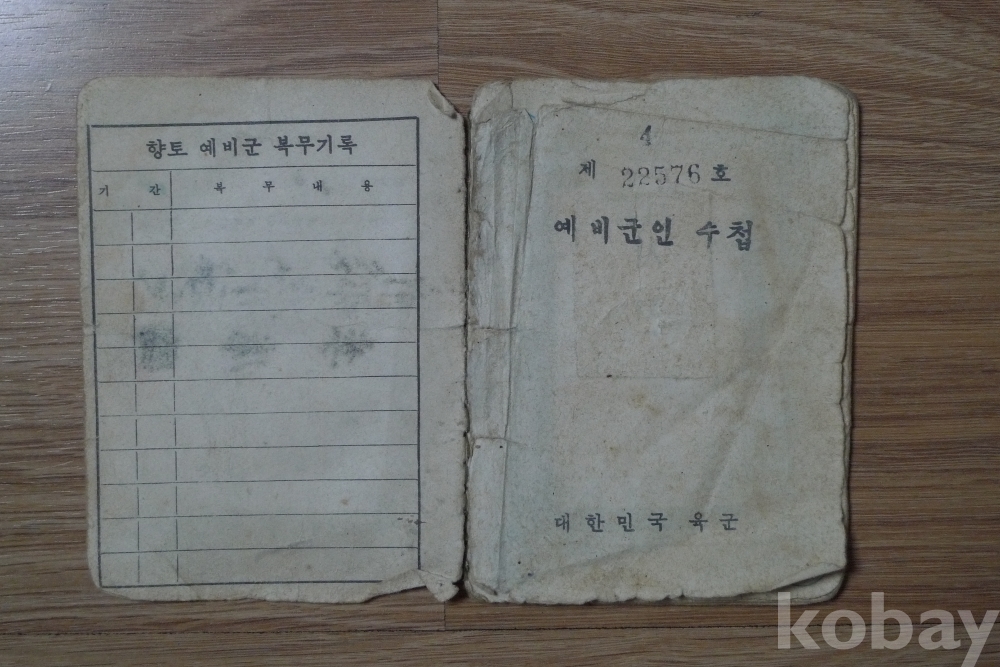 향토 예비군 복무기록
기 간 복 무 내 용
4
제 22576 호
예비군인 수첩
대한민국 육군
kobay